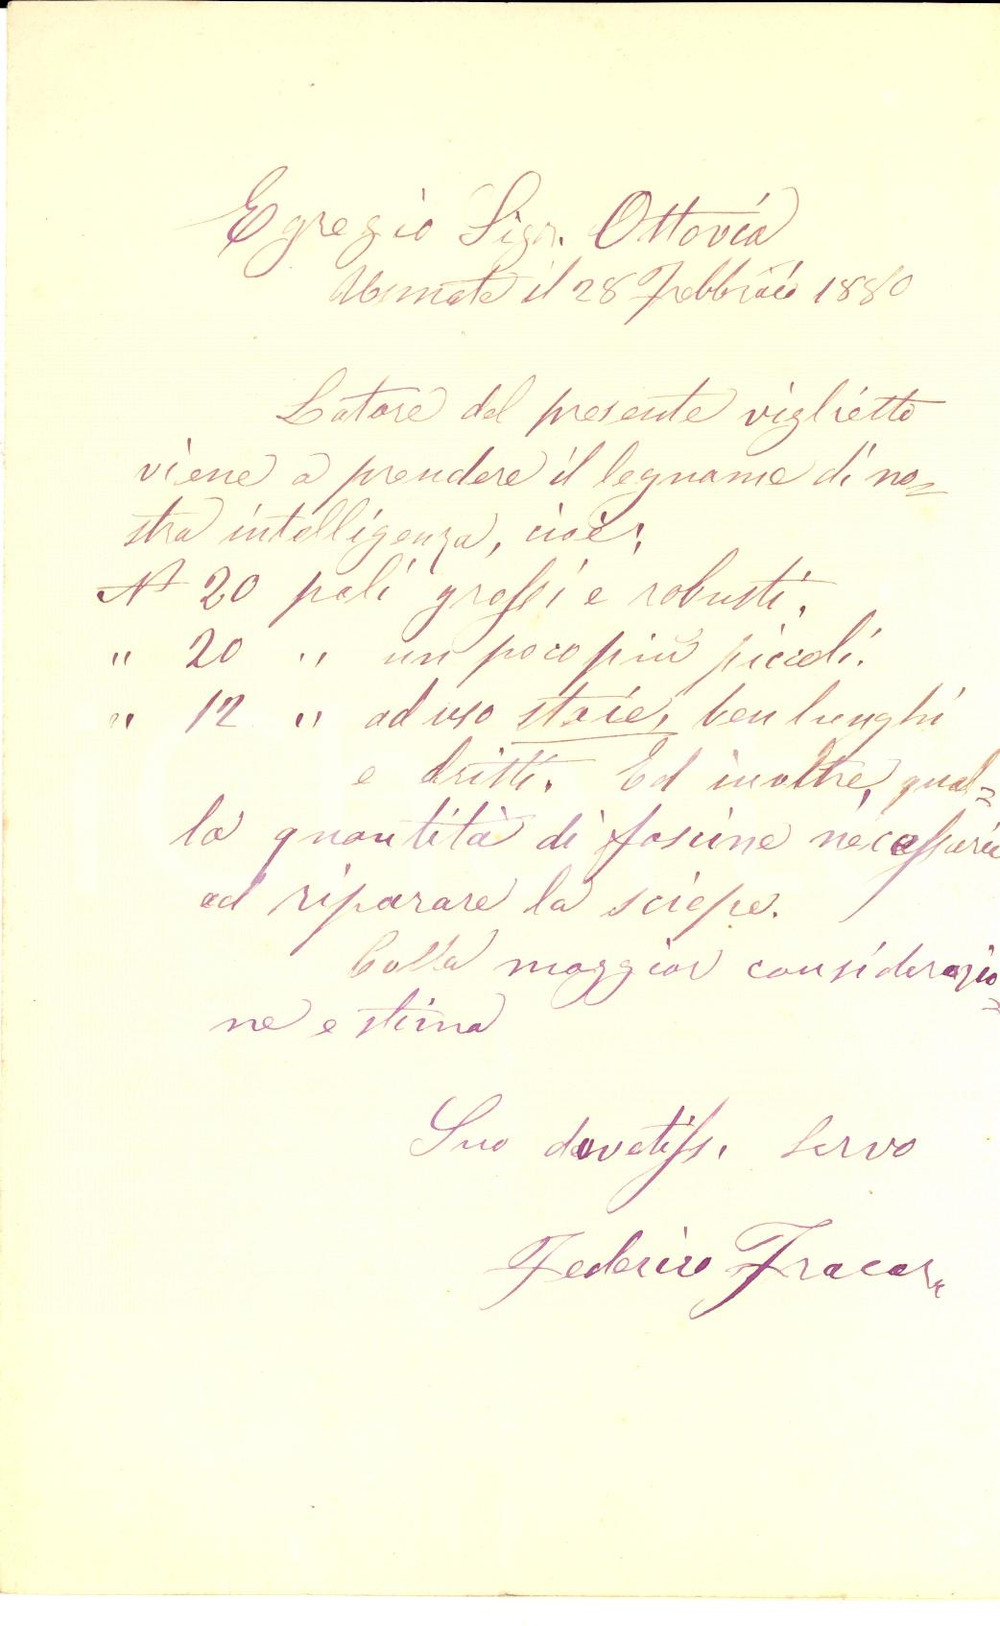 Egregio Sign. Ottovia
il 28 Febbraio 1880
Latore del presente viglietto
viene a prendere il legname di no=
stra intelligenza, cioè:
N 20 pali grossi e robusti.
" 20 " un poco più piccoli.
" 12 " ad uso staie, ben lunghi
e dritti. Ed inoltre, quel=
la quantità di fascine necessaria
ad riparare la sciepe.
Colla maggior considerazio=
ne e stima
Suo devotiss. servo
Federico